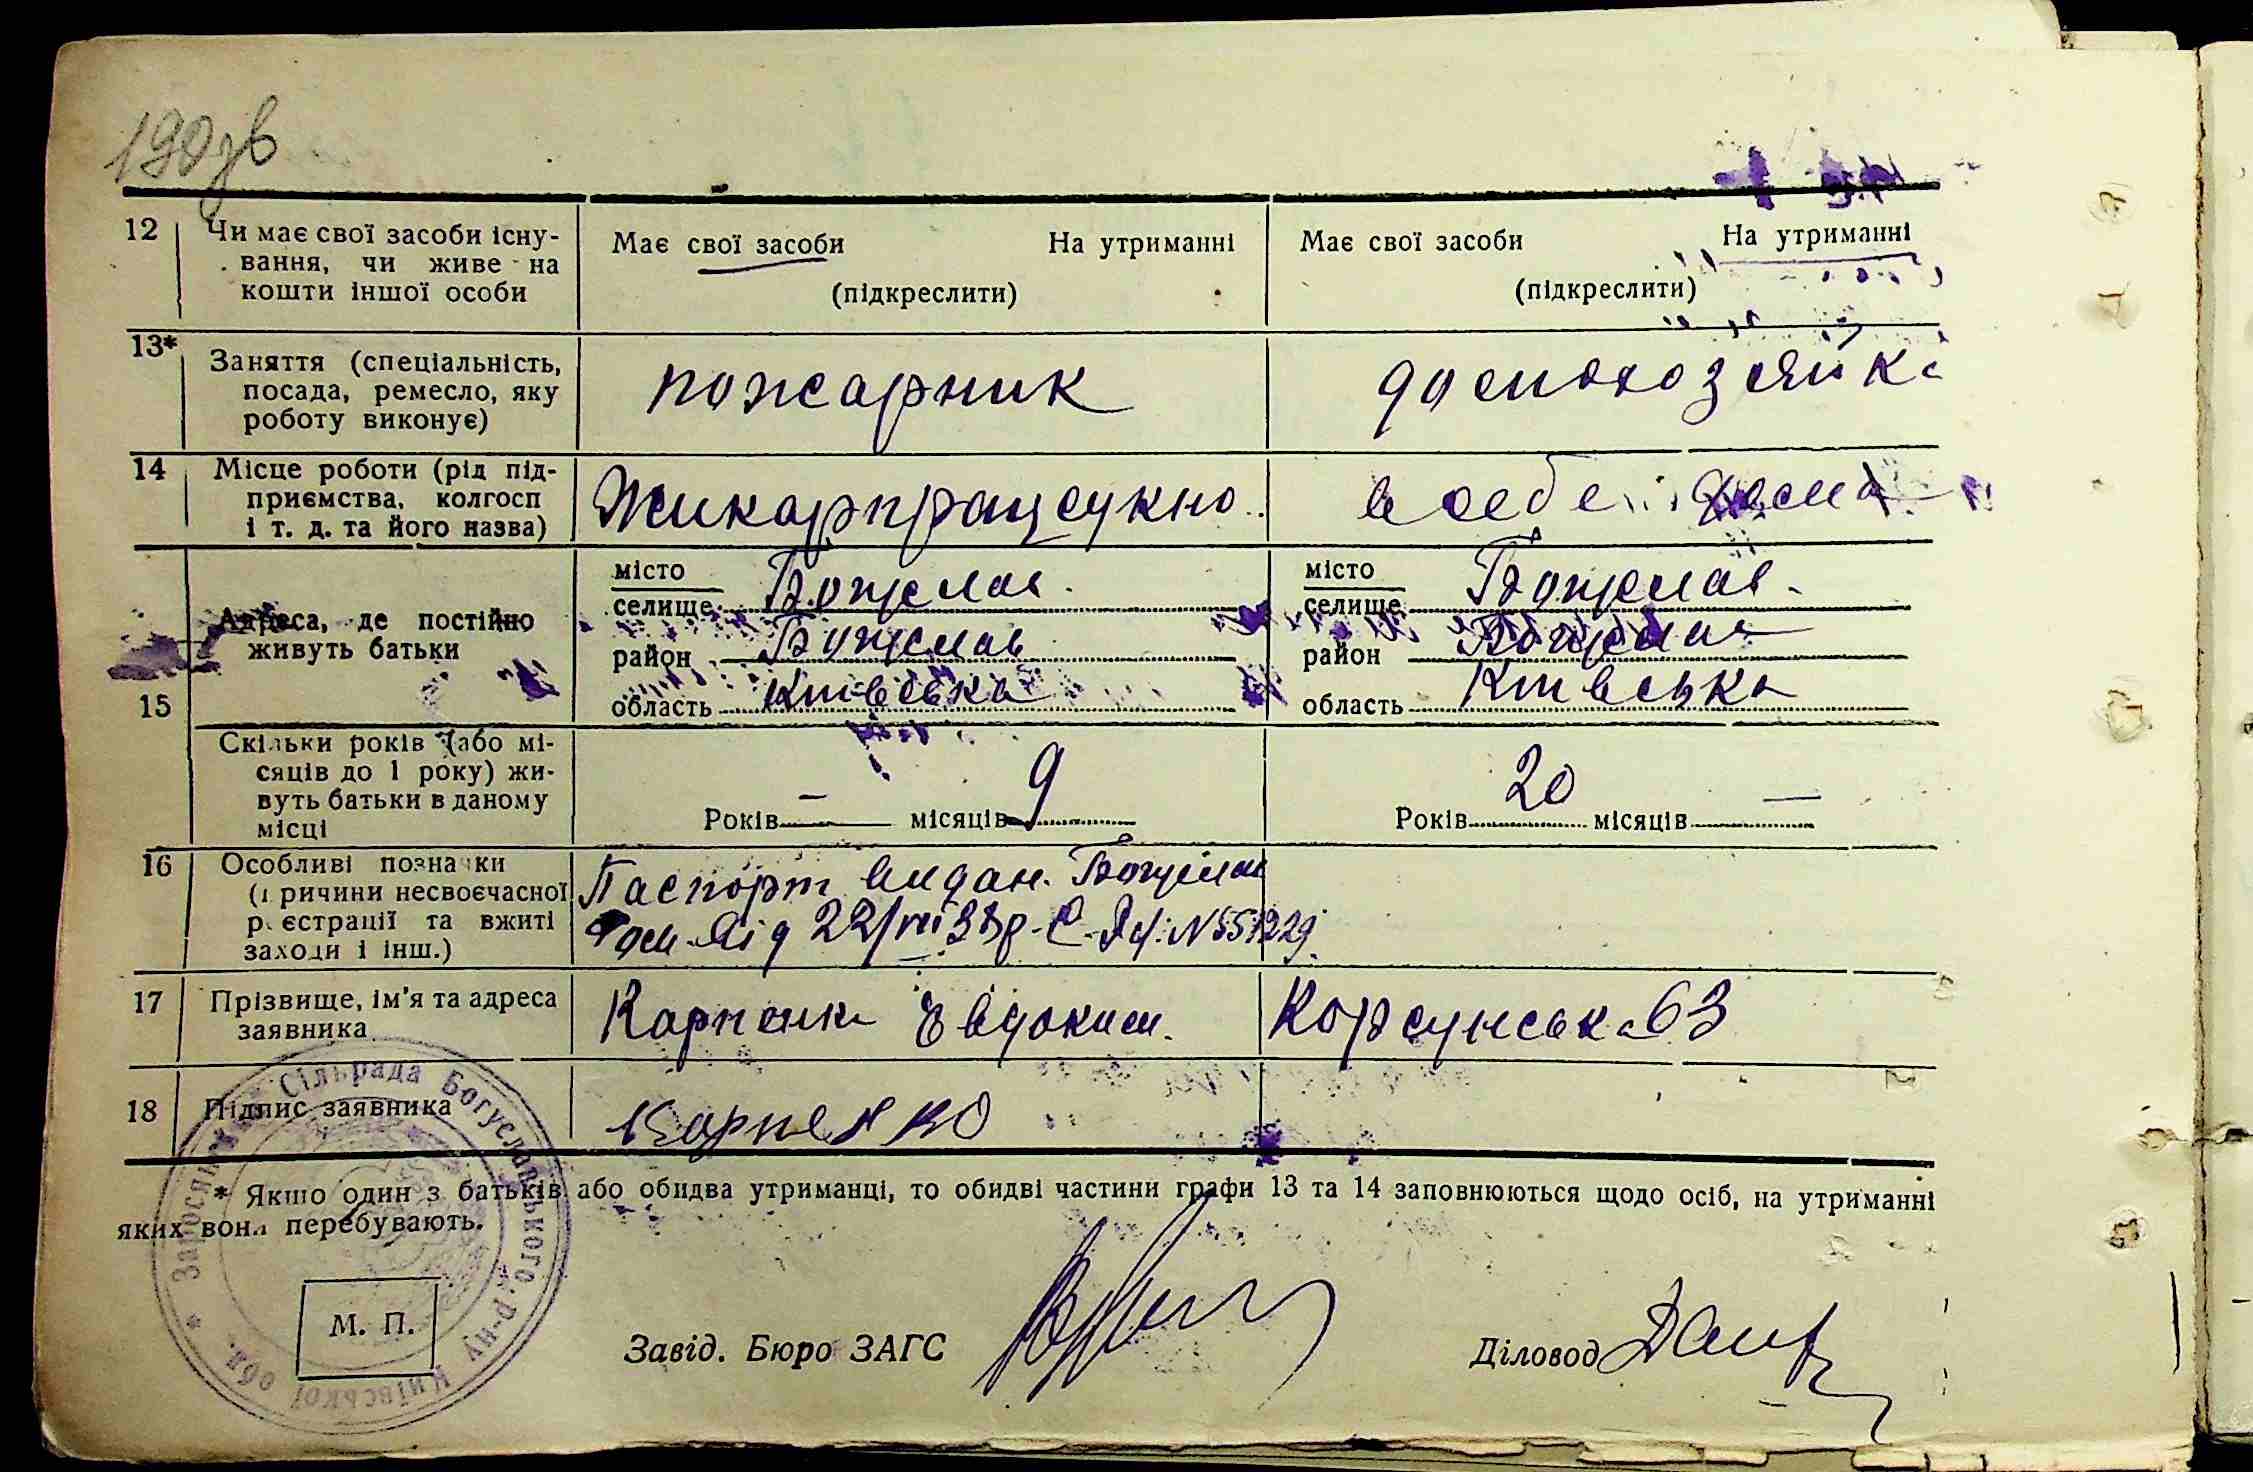 190зв
12 Чи має свої засоби існу-
вання, чи живе на
кошти іншої особи
Має свої засоби На утриманні
(підкреслити)
Має свої засоби На утриманні
(підкреслити)
13* Заняття (спеціальність,
посада, ремесло, яку
роботу виконує)
пожарник
домохозяйка
14 Місце роботи (рід під-
приємства, колгосп
і т. д. та його назва)
в себе дома
15 Адреса, де постійно
живуть батьки
місто
селище Богуслав
район Богуслав
область Київська
місто
селище Богуслав
район Богуслав
область Київська
Скільки років (або мі-
сяців до 1 року) жи-
вуть батьки в даному
місці
Років — місяців 9
Років 20 місяців —
16 Особливі позначки
(причини несвоєчасної
реєстрації та вжиті
заходи і інш.)
Паспорт видан. Богуслав
від 22/VII 33р. №551229
17 Прізвище, ім'я та адреса
заявника
Карпенко Евдоким.
Корсунська 63
18 Підпис заявника
Карпенко
* Якшо один з батьків або обидва утриманці, то обидві частини графи 13 та 14 заповнюються щодо осіб, на утриманні
яких вони перебувають.
Сільрада Богуславського р-ну Київської обл.
М. П.
Завід. Бюро ЗАГС
Діловод